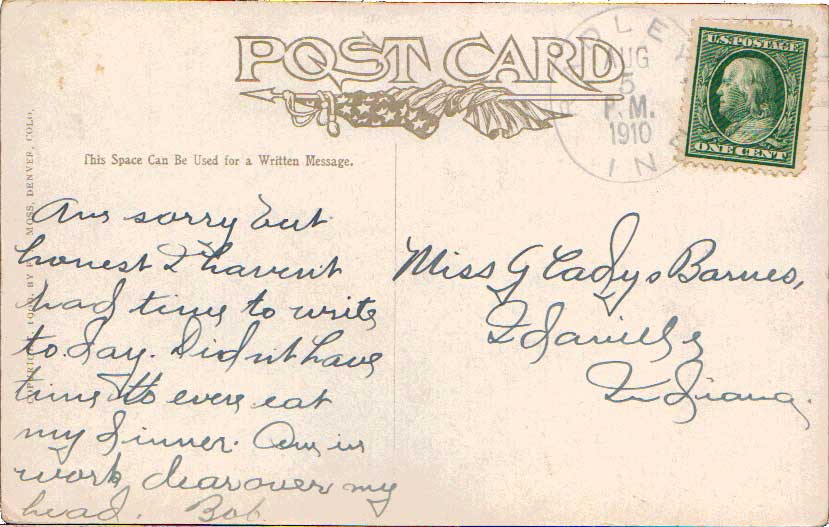 POST CARD
AUG
5
P. M.
1910
IN
U.S. POSTAGE
ONE CENT
This Space Can Be Used for a Written Message.
MOSS, DENVER, COLO.
Am sorry but
honest I haven't
had time to write
to day. Didn't have
time to even eat
my dinner. Am in
work clear over my
head. Bob
Miss Gladys Barnes,
Indiana.